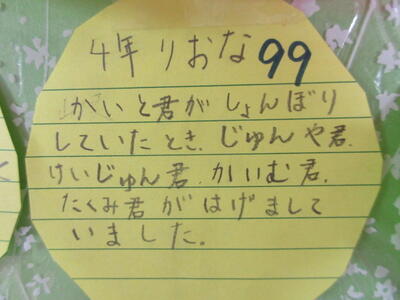 4年 りおな 99
かいと君がしょんぼり
していたとき、じゅんや君、
けいじゅん君、かいむ君、
たくみ君がはげまして
いました。